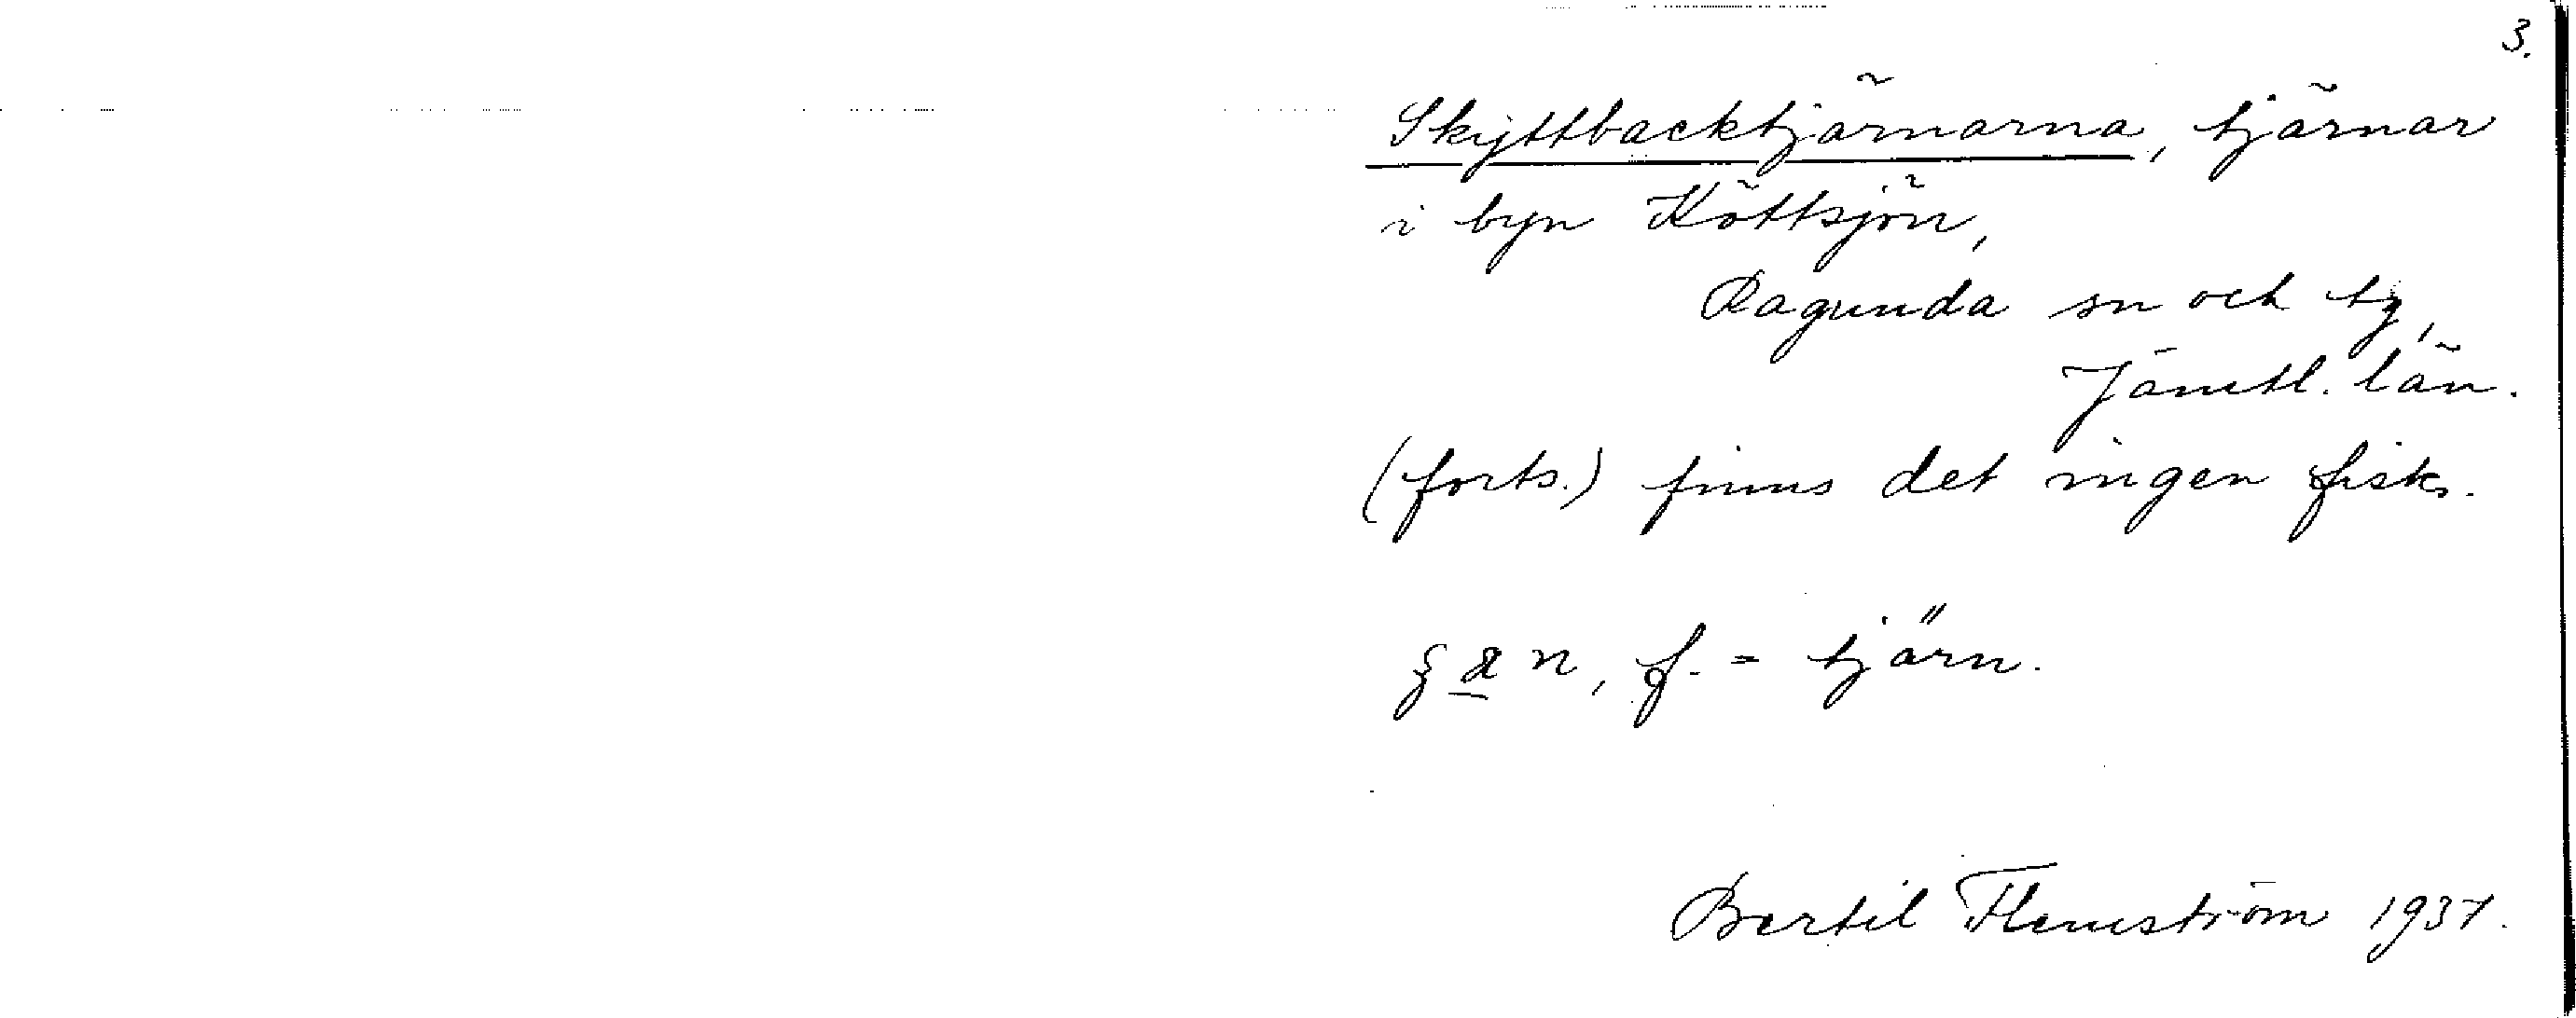 3.
Skyttbacktjärnarna, tjärnar
i byn Köttsjön,
Ragunda sn och tg,
Jämtl. län.
(forts.) finns det ingen fisk.
f. = tjärn.
Bertil Flemström 1937.